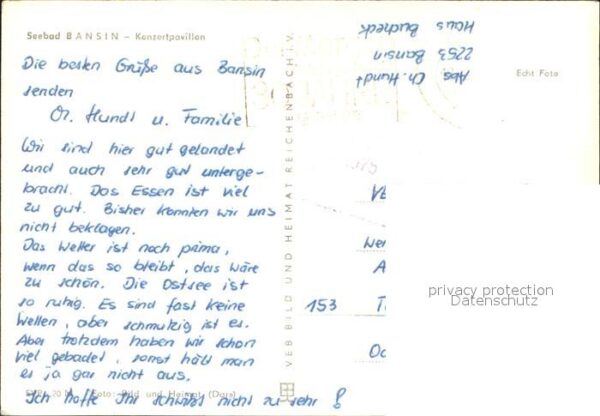 Seebad BANSIN – Konzertpavillon
Die besten Grüße aus Bansin
senden
Ch. Hundt u. Familie
Wir sind hier gut gelandet
und auch sehr gut unterge-
bracht. Das Essen ist viel
zu gut. Bisher konnten wir uns
nicht beklagen.
Das Wetter ist noch prima,
wenn das so bleibt, das wäre
zu schön. Die Ostsee ist
so ruhig. Es sind fast keine
Wellen, aber schmutzig ist es.
Aber trotzdem haben wir schon
viel gebadet, sonst hält man
es ja gar nicht aus.
Foto: Bild und Heimat (Dars)
Ich hoffe Ihr schwitzt nicht zu sehr!
VEB BILD UND HEIMAT REICHENBACH i. V.
Abs. Ch. Hundt
2253 Bansin
Haus Bucheck
Echt Foto
153
privacy protection
Datenschutz